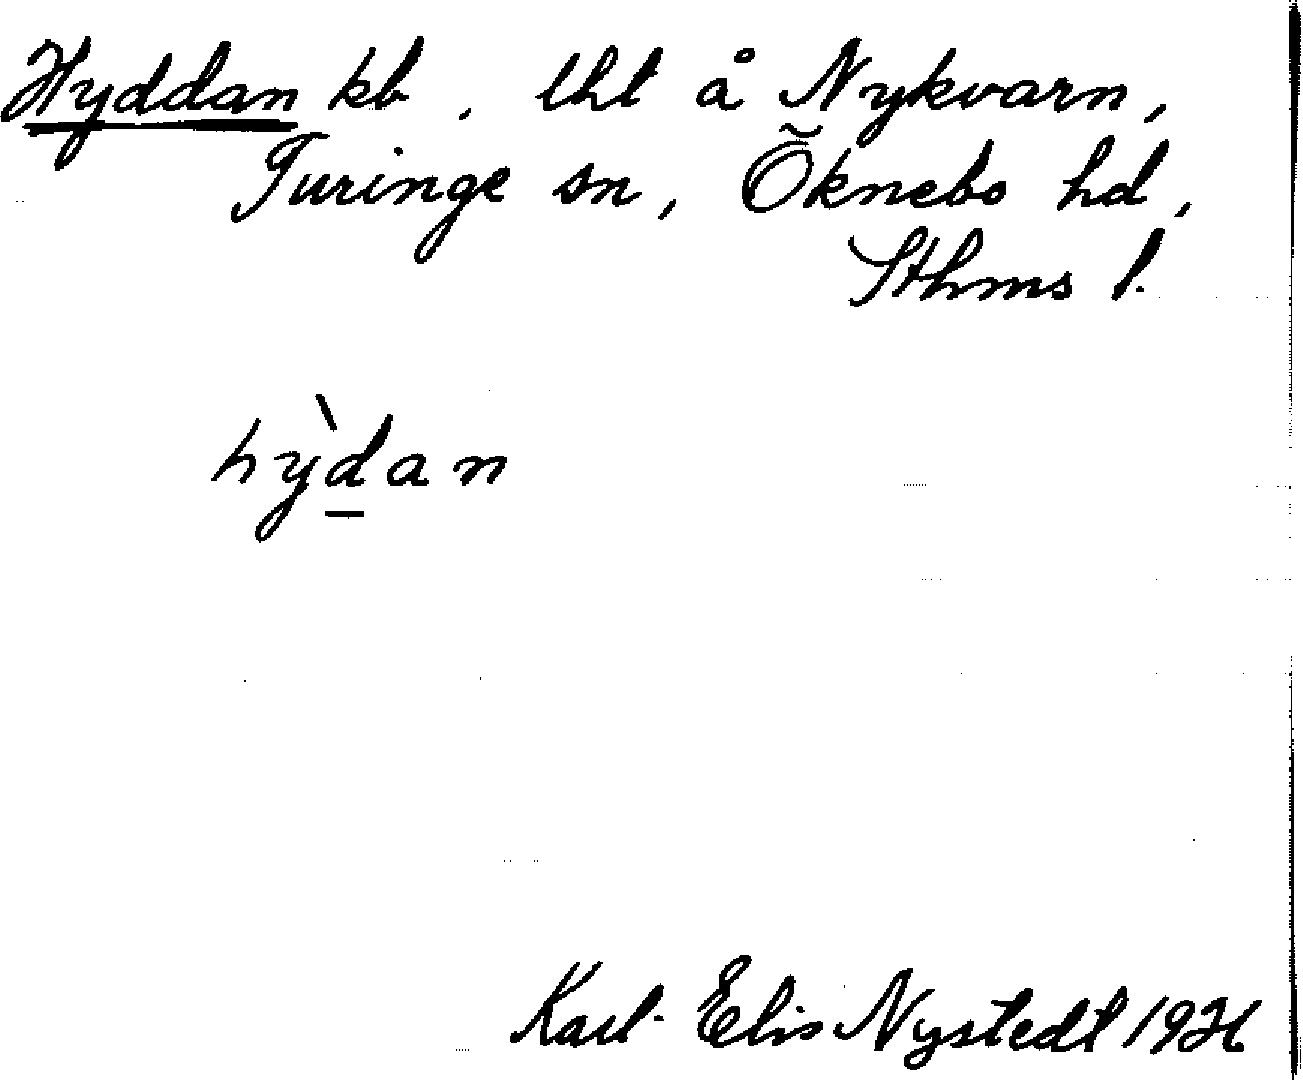 Hyddan kb, tht å Nykvarn,
Turinge sn, Öknebo hd,
Sthms l.
hỳd̲an
Karl-Elis Nystedt